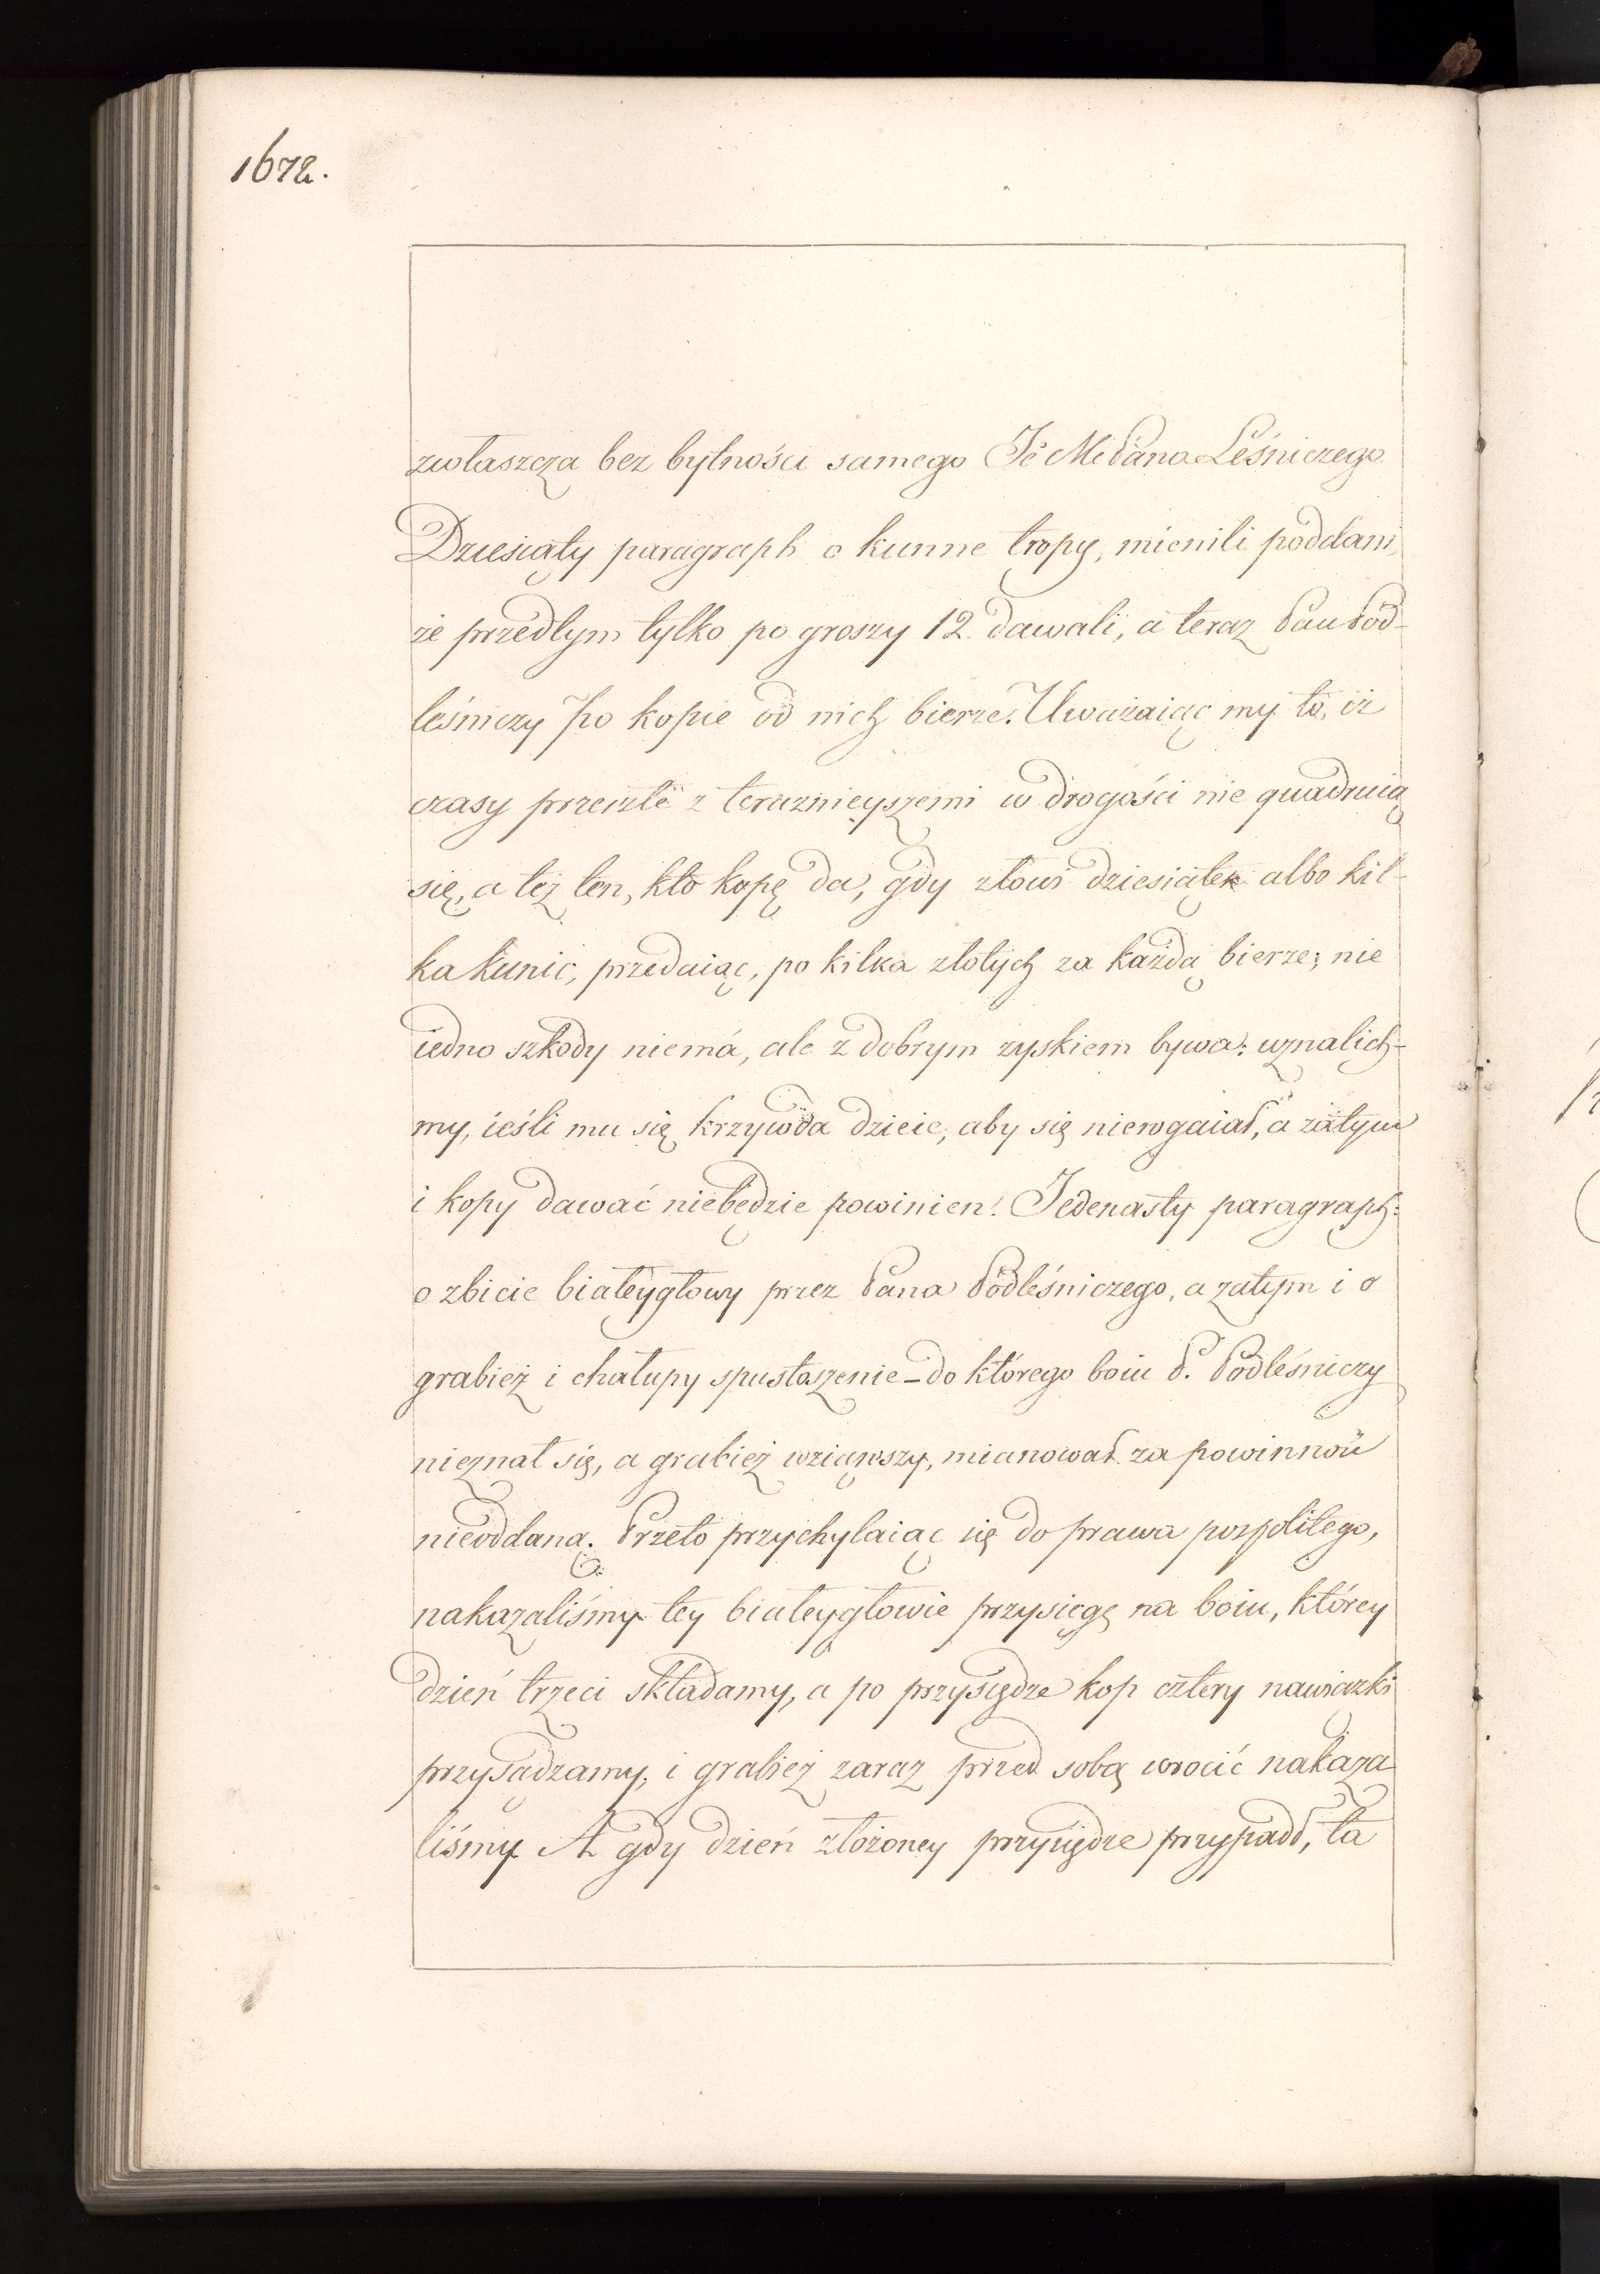 1672.
zwłaszcza bez bytności samego Jé Mć Pana Leśniczego
Dziesiąty paragraph o kunne tropy, mienili poddani,
że przedtym tylko po groszy 12. dawali, a teraz Pan Pod-
leśniczy po kopie od nich bierze. Uważaiąc my to, iż
czasy przeszłe z teraznieyszemi w drogości nie quadruią
się, a też ten, kto kopę da, gdy złowi dziesiątek albo kil-
ka kunic, przedaiąc, po kilka złotych za każdą bierze; nie
iedno szkody niemá, ale z dobrym zyskiem bywa: uznalich-
my, ieśli mu się krzywda dzieie, aby się niewgaiał, a zatym
i kopy dawać niebędzie powinien. Jedenasty paragraph:
o zbicie białeygłowy przez Pana Podleśniczego, a zatym i o
grabież i chałupy spustoszenie – do którego boiu P. Podleśniczy
nieznał się, a grabież wziąwszy, mianował za powinność
nieoddaną. Przeto przychylaiąc się do prawa pospolitego,
nakazaliśmy tey białeygłowie przysięgę na boiu, którey
dzień trzeci składamy, a po przysiędze kop cztery nawiązki
przysądzamy, i grabież zaraz przed sobą wrócić nakaza
liśmy. A gdy dzień złożoney przysiędze przypadł, ta